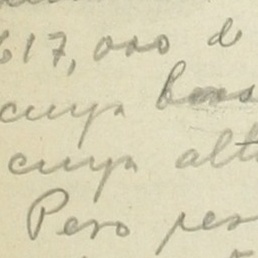 617,000 d
cuya bas
cuya alt
Pero pes